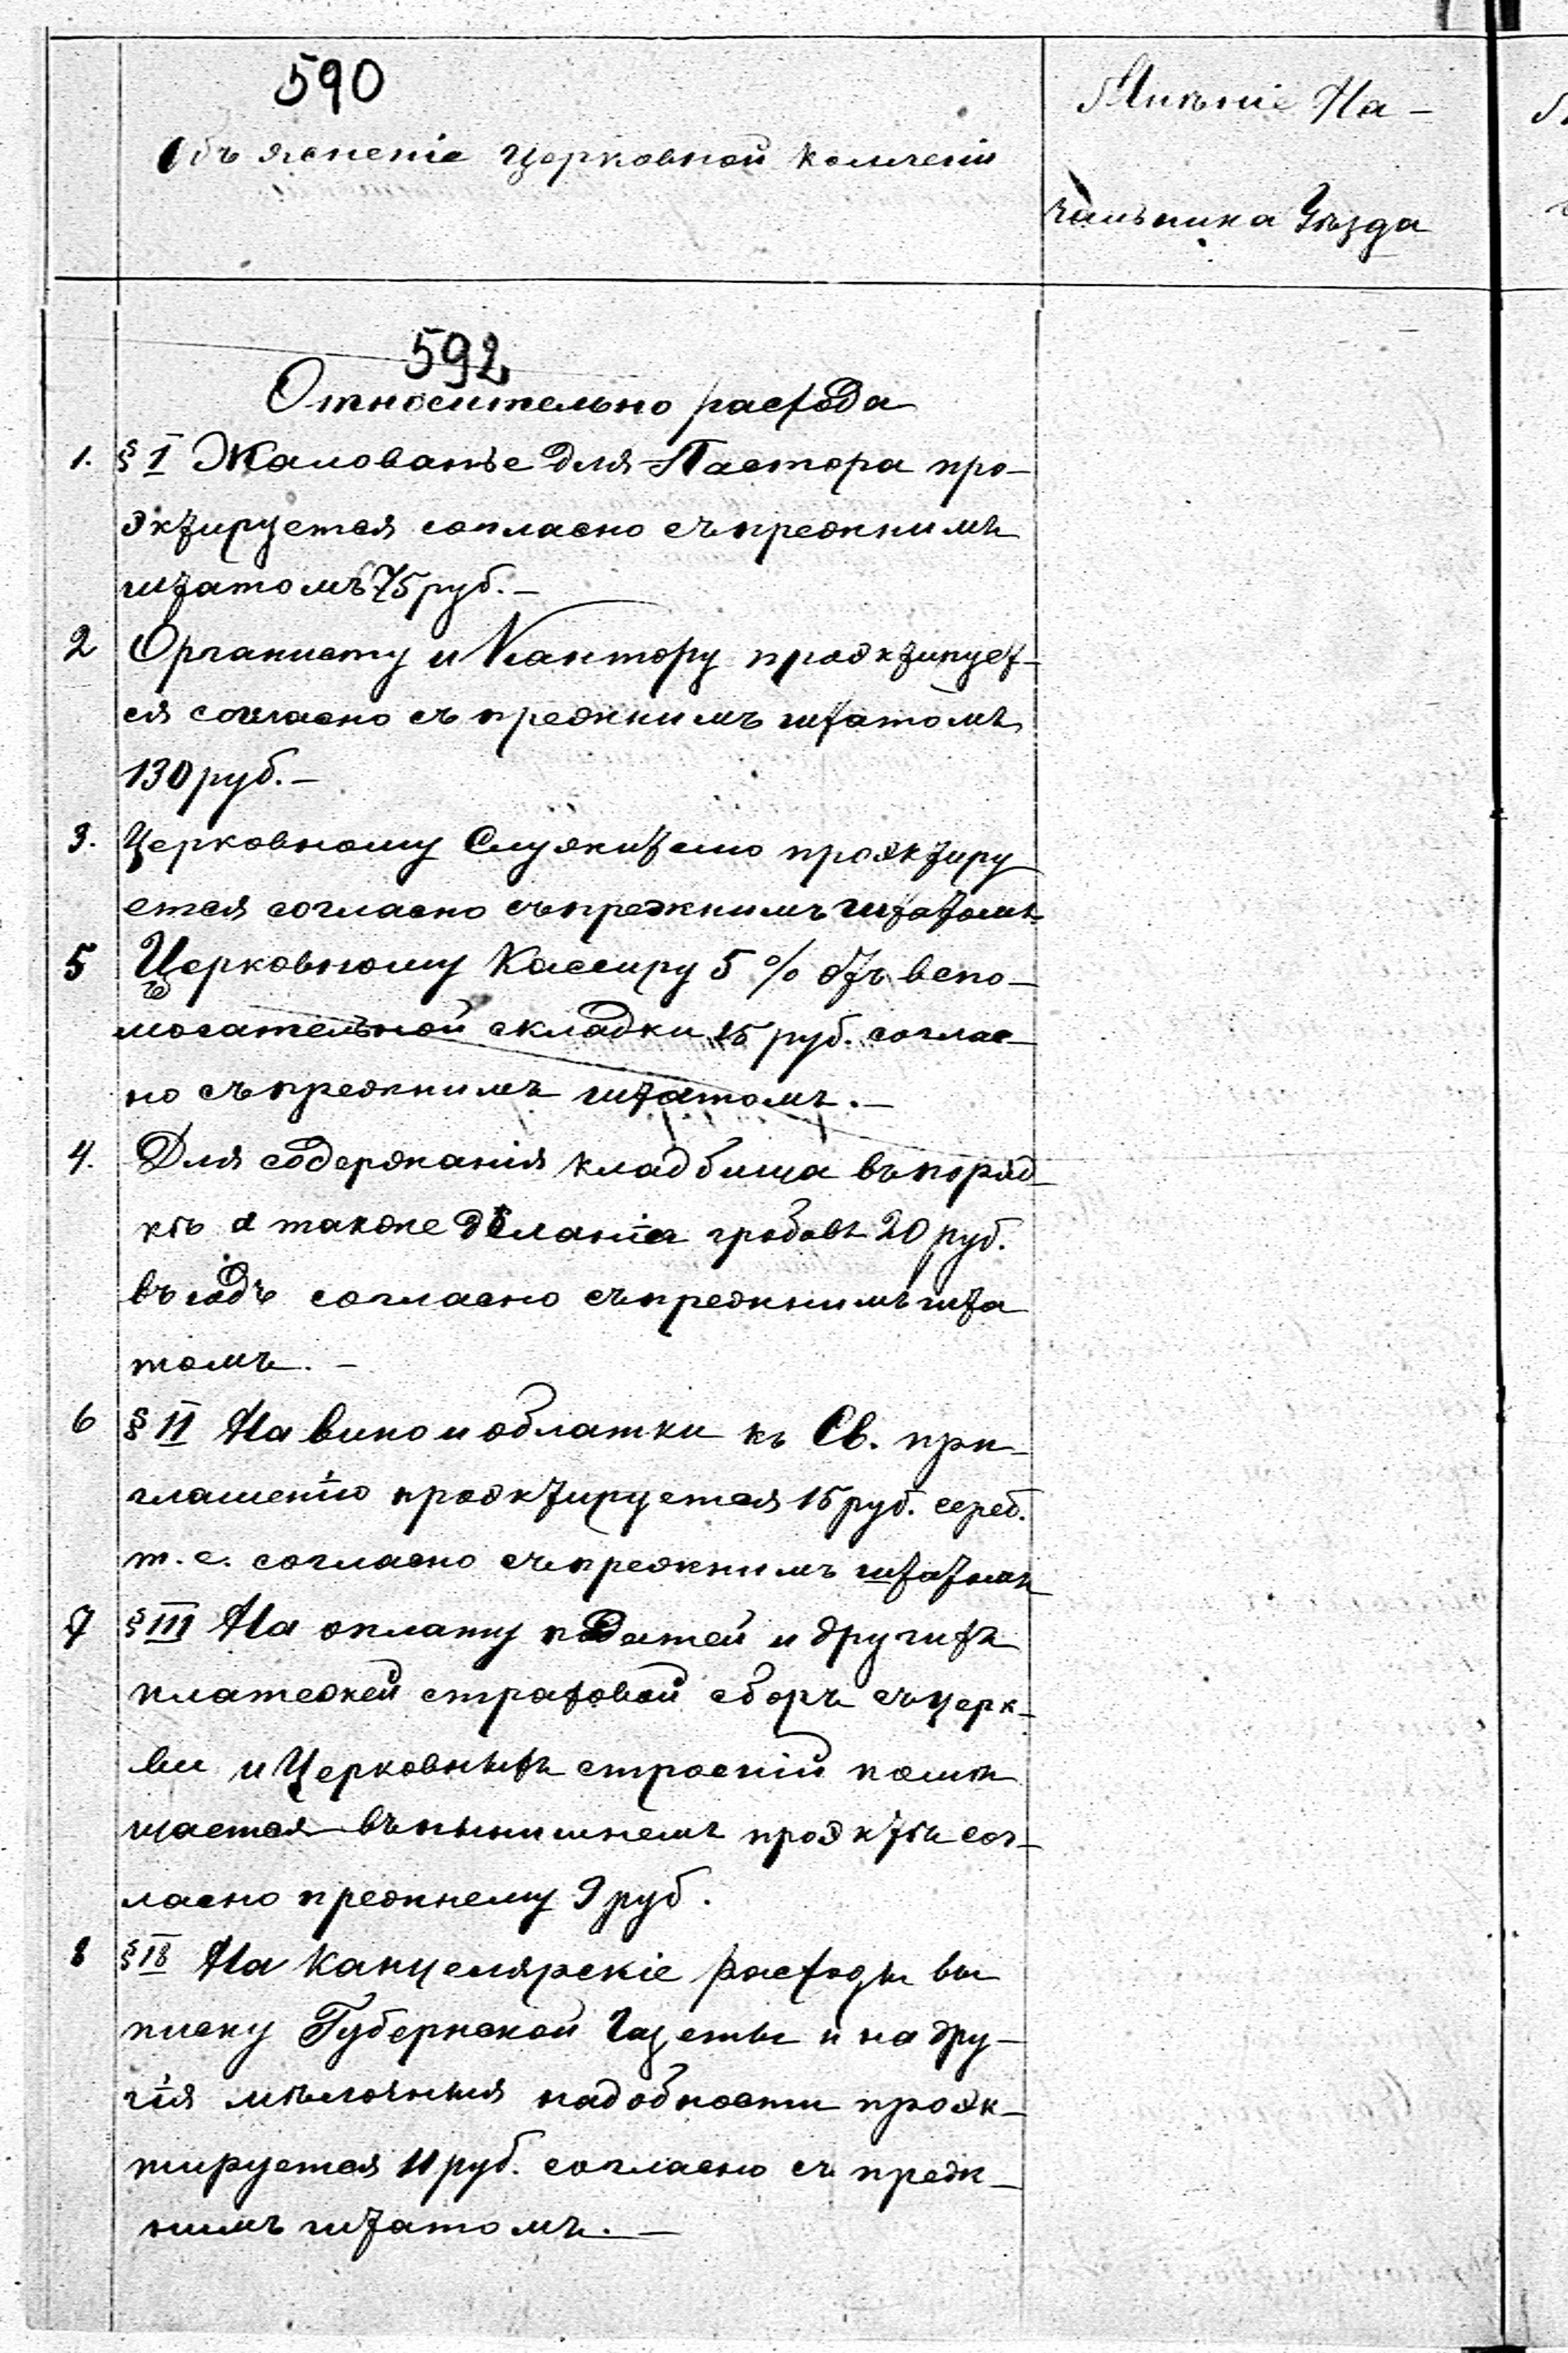 590
Объясненіе Церковной Коллегіи
Мнѣніе На-
чальника Уѣзда
592
Относительно расхода
1. § I Жалованье для Пастора про-
эктируется согласно съ прежнимъ
штатомъ 75 руб. –
2 Органисту и Кантору проэктирует-
ся согласно съ прежнимъ штатомъ
130 руб. –
3. Церковному Служителю проэктиру
ется согласно съ прежнимъ штатомъ
5 Церковному Кассиру 5 % отъ вспо-
могательной складки 15 руб. соглас-
но съ прежнимъ штатомъ. –
4. Для содержанія кладбища въ поряд
кѣ а также дѣланіа гробовъ 20 руб.
въ годъ согласно съ прежнимъ шта
томъ. –
6 § II На вино и облатки къ Св. при-
глашенію проэктируется 15 руб. сереб.
т. е. согласно съ прежнимъ штатомъ
7 § III На оплату податей и другихъ
платежей страховой сборъ съ церк-
ви и Церковныхъ строеній помѣ
щается въ нынишнемъ проэктѣ сог-
ласно прежнему 9 руб.
8 § IV На Канцелярскіе расходы вы
писку Губернской Газеты и на дру-
гія мѣлочныя надобности проэк-
тируется 11 руб. согласно съ преж-
нимъ штатомъ. –